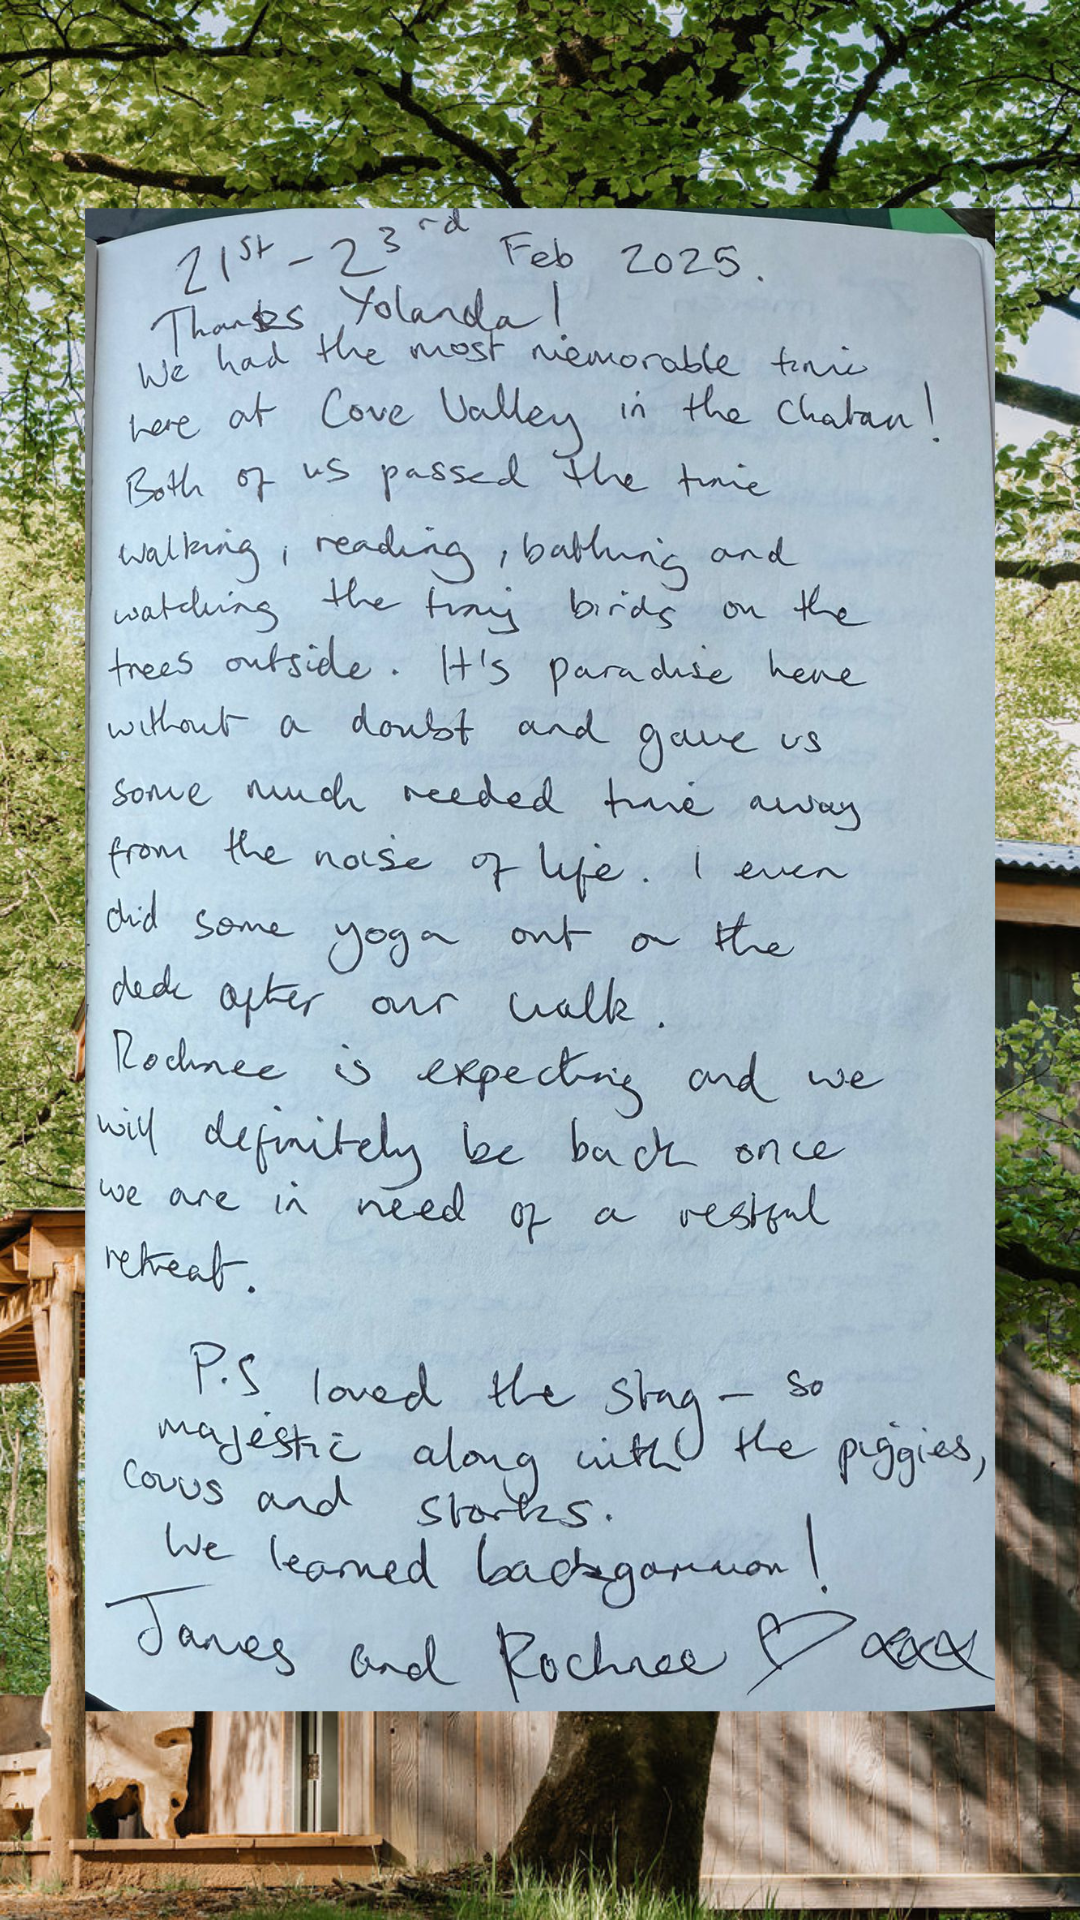 21st - 23rd Feb 2025.
Thanks Yolanda!
We had the most memorable time
here at Cove Valley in the Chatan!
Both of us passed the time
walking, reading, bathing and
watching the tiny birds on the
trees outside. It's paradise here
without a doubt and gave us
some much needed time away
from the noise of life. I even
did some yoga out on the
deck after our walk.
Rochnee is expecting and we
will definitely be back once
we are in need of a restful
retreat.
P.S loved the stag - so
majestic along with the piggies,
cows and storks.
We learned backgammon!
James and Rochnee ♡ xxx